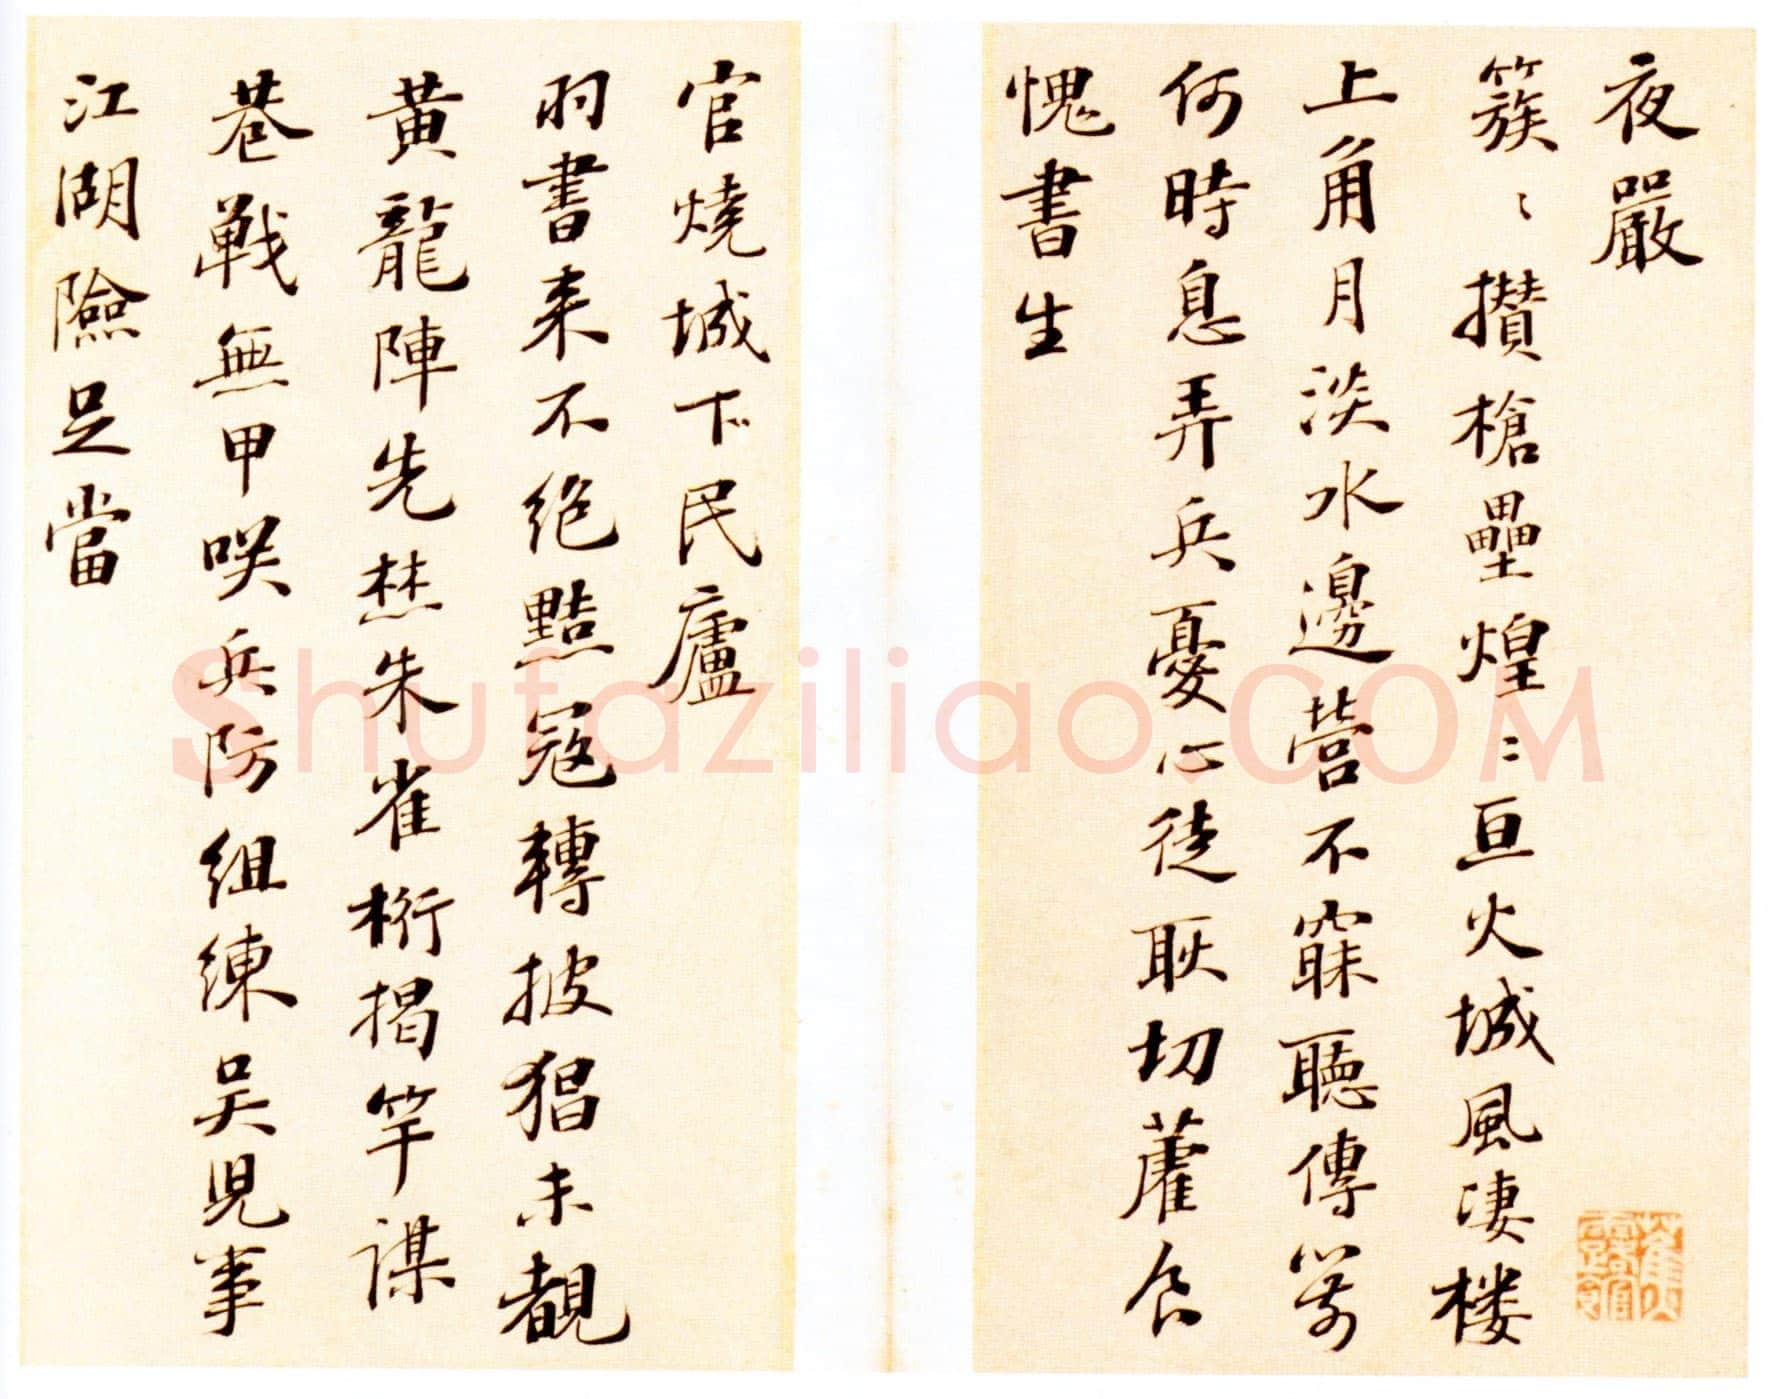 夜嚴
簇〻攢槍壘煌〻亘火城風淒樓
上角月淡水邊營不寐聽傳箭
何時息弄兵憂心徒耿切藿食
愧書生
官燒城下民廬
羽書来不絕黠寇轉披猖未覩
黃龍陣先焚朱雀桁揭竿謀
巷戰無甲咲兵防組練吳児事
江湖險足當
Shufaziliao.COM